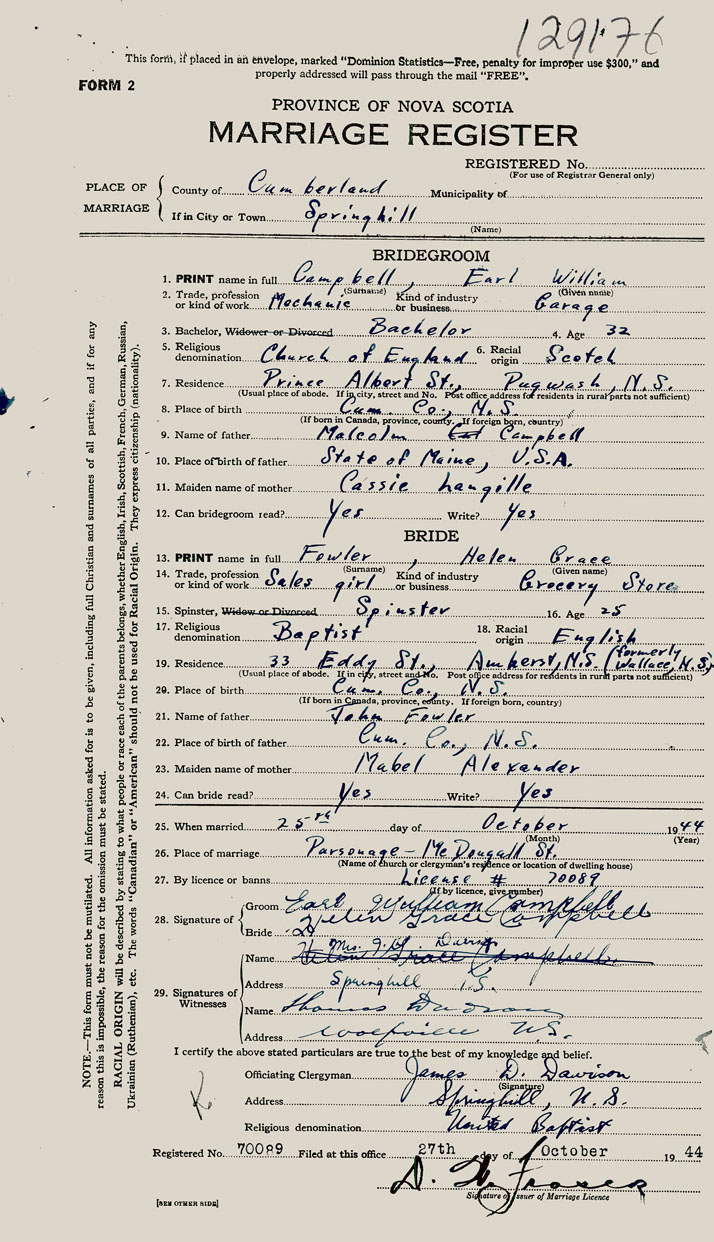 129176
This form, if placed in an envelope, marked "Dominion Statistics—Free, penalty for improper use $300," and
properly addressed will pass through the mail "FREE".
FORM 2
PROVINCE OF NOVA SCOTIA
MARRIAGE REGISTER
REGISTERED No.
(For use of Registrar General only)
PLACE OF MARRIAGE
County of Cumberland Municipality of
If in City or Town Springhill
(Name)
BRIDEGROOM
1. PRINT name in full Campbell, Earl William
(Surname) (Given name)
2. Trade, profession or kind of work Mechanic Kind of industry or business Garage
3. Bachelor, Widower or Divorced Bachelor 4. Age 32
5. Religious denomination Church of England 6. Racial origin Scotch
7. Residence Prince Albert St., Pugwash, N.S.
(Usual place of abode. If in city, street and No. Post office address for residents in rural parts not sufficient)
8. Place of birth Cum. Co., N.S.
(If born in Canada, province, county. If foreign born, country)
9. Name of father Malcolm Campbell
10. Place of birth of father State of Maine, U.S.A.
11. Maiden name of mother Cassie Langille
12. Can bridegroom read? Yes Write? Yes
BRIDE
13. PRINT name in full Fowler, Helen Grace
(Surname) (Given name)
14. Trade, profession or kind of work Sales girl Kind of industry or business Grocery Store
15. Spinster, Widow or Divorced Spinster 16. Age 25
17. Religious denomination Baptist 18. Racial origin English
19. Residence 33 Eddy St., Amherst, N.S. (formerly Wallace, N.S.)
(Usual place of abode. If in city, street and No. Post office address for residents in rural parts not sufficient)
20. Place of birth Cum. Co., N.S.
(If born in Canada, province, county. If foreign born, country)
21. Name of father John Fowler
22. Place of birth of father Cum. Co., N.S.
23. Maiden name of mother Mabel Alexander
24. Can bride read? Yes Write? Yes
25. When married 25 day of October 1944
(Month) (Year)
26. Place of marriage Parsonage - McDougall St.
(Name of church or clergyman's residence or location of dwelling house)
27. By licence or banns License # 70089
(If by licence, give number)
28. Signature of
Groom Earl William Campbell
Bride Helen Grace Campbell
29. Signatures of Witnesses
Name Mrs. J. D. Davison
Helen Grace Campbell
Address Springhill N.S.
Name Thomas Davison
Address Wolfville N.S.
I certify the above stated particulars are true to the best of my knowledge and belief.
Officiating Clergyman James D. Davison
(Signature)
Address Springhill, N.S.
Religious denomination United Baptist
Registered No. 70089 Filed at this office 27th day of October 1944
Signature of Issuer of Marriage Licence
[SEE OTHER SIDE]
NOTE.—This form must not be mutilated. All information asked for is to be given, including full Christian and surnames of all parties, and if for any
reason this is impossible, the reason for the omission must be stated.
RACIAL ORIGIN will be described by stating to what people or race each of the parents belongs, whether English, Irish, Scottish, French, German, Russian,
Ukrainian (Ruthenian), etc. The words "Canadian" or "American" should not be used for Racial Origin. They express citizenship (nationality).